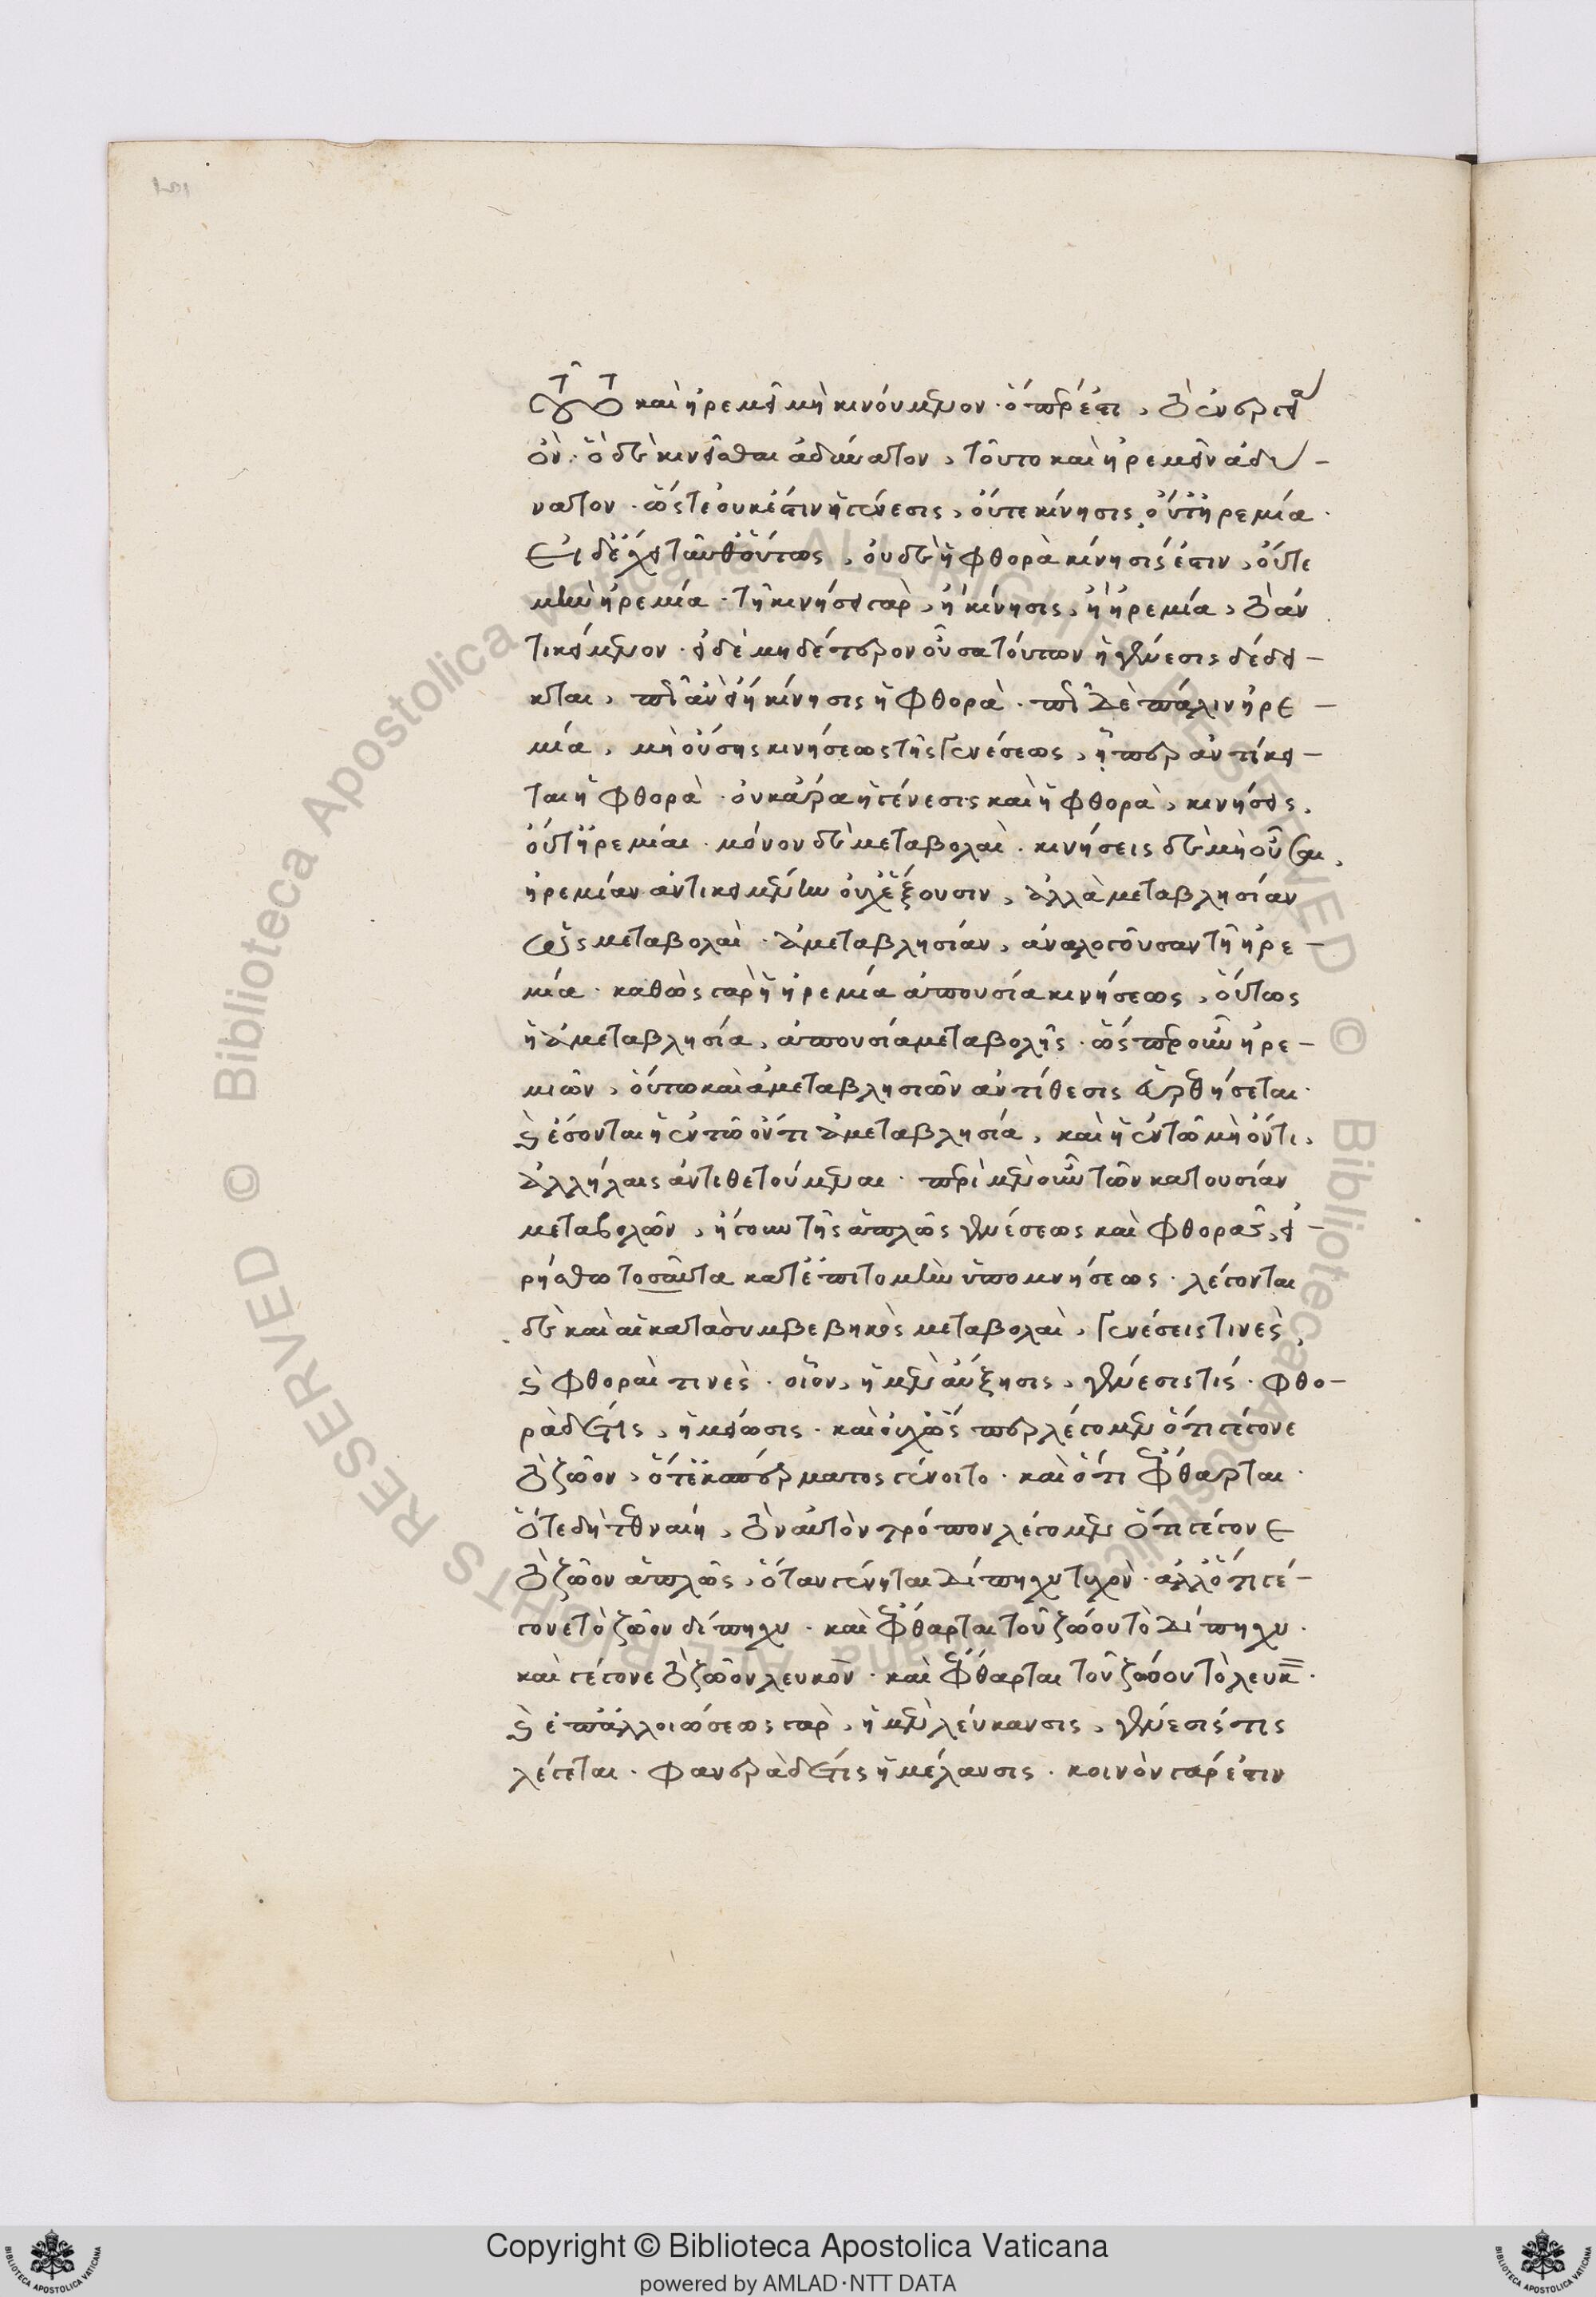 τοῦτο καὶ ἠρεμεῖ μὴ κινούμενον· ὅπερ ἐστὶ, τὸ ἐνεργείᾳ
ὄν· ὃ δὲ κινεῖσθαι ἀδύνατον, τοῦτο καὶ ἠρεμεῖν ἀδύ-
νατον· ὥστε οὐκ ἔστιν ἡ γένεσις, οὔτε κίνησις, οὔτ' ἠρεμία·
Εἰ δὲ ἔχει ταῦθ' οὕτως, οὐδὲ ἡ φθορὰ κίνησίς ἐστιν, οὔτε
μὴν ἠρεμία· τῇ κινήσει γὰρ, ἢ κίνησις, ἢ ἠρεμία, τὸ ἀν
τικείμενον· εἰ δὲ μηδέτερον οὖσα τούτων ἡ γένεσις δέδει-
κται, πῶς ἂν εἴη κίνησις ἡ φθορὰ· πῶς δὲ πάλιν ἠρε-
μία, μὴ οὔσης κινήσεως τῆς γενέσεως, ᾗπερ ἀντίκει-
ται ἡ φθορὰ· οὐκ ἄρα ἡ γένεσις καὶ ἡ φθορὰ, κινήσεις,
οὔτ' ἠρεμίαι· μόνον δὲ μεταβολαὶ· κινήσεις δὲ μὴ οὖσαι,
ἠρεμίαν ἀντικειμένην οὐχ ἕξουσιν, ἀλλὰ μεταβλησίαν
ὡς μεταβολαὶ· ἀμεταβλησίαν, ἀναλογοῦσαν τῇ ἠρε-
μία· καθὼς γὰρ ἡ ἠρεμία ἀπουσία κινήσεως, οὕτως
ἡ ἀμεταβλησία, ἀπουσία μεταβολῆς· ὥσπερ οὖν ἠρε-
μιῶν, οὕτω καὶ ἀμεταβλησιῶν ἀντίθεσις εὑρεθήσεται·
καὶ ἔσονται ἡ ἐν τῷ ὄντι ἀμεταβλησία, καὶ ἡ ἐν τῷ μὴ ὄντι,
ἀλλήλαις ἀντιθετούμεναι· περὶ μὲν οὖν τῶν κατ' οὐσίαν
μεταβολῶν, ἤγουν τῆς ἁπλῶς γενέσεως καὶ φθορᾶς, εἰ-
ρήσθω τοσαῦτα κατ' ἐπιτομὴν ὑπομνήσεως· λέγονται
δὲ καὶ αἱ κατὰ συμβεβηκὸς μεταβολαὶ, γενέσεις τινὲς,
καὶ φθοραὶ τινὲς· οἷον, ἡ μὲν αὔξησις, γένεσις τίς· φθο-
ρὰ δέ τις, ἡ μείωσις· καὶ οὐχ ὥσπερ λέγομεν ὅτι γέγονε
τὸ ζῶον, ὅτ' ἐκ σπέρματος γένοιτο· καὶ ὅτι ἔφθαρται·
ὅτε δὴ τεθναίη, τὸν αὐτὸν τρόπον λέγομεν ὅτι γέγονε
τὸ ζῶον ἁπλῶς, ὅταν γένηται δίπηχυ τυχὸν· ἀλλ' ὅτι γέ-
γονε τὸ ζῶον δίπηχυ· καὶ ἔφθαρται τοῦ ζώου τὸ δίπηχυ·
καὶ γέγονε τὸ ζῶον λευκὸν· καὶ ἔφθαρται τοῦ ζώου τὸ λευκ·
καὶ ἐπ' ἀλλοιώσεως γὰρ, ἡ μὲν λεύκανσις, γένεσίς τις
λέγεται· φανερὰ δέ τις ἡ μέλανσις· κοινὸν γάρ ἐστιν
Copyright © Biblioteca Apostolica Vaticana
powered by AMLAD·NTT DATA
© Biblioteca Apostolica Vaticana ALL RIGHTS RESERVED